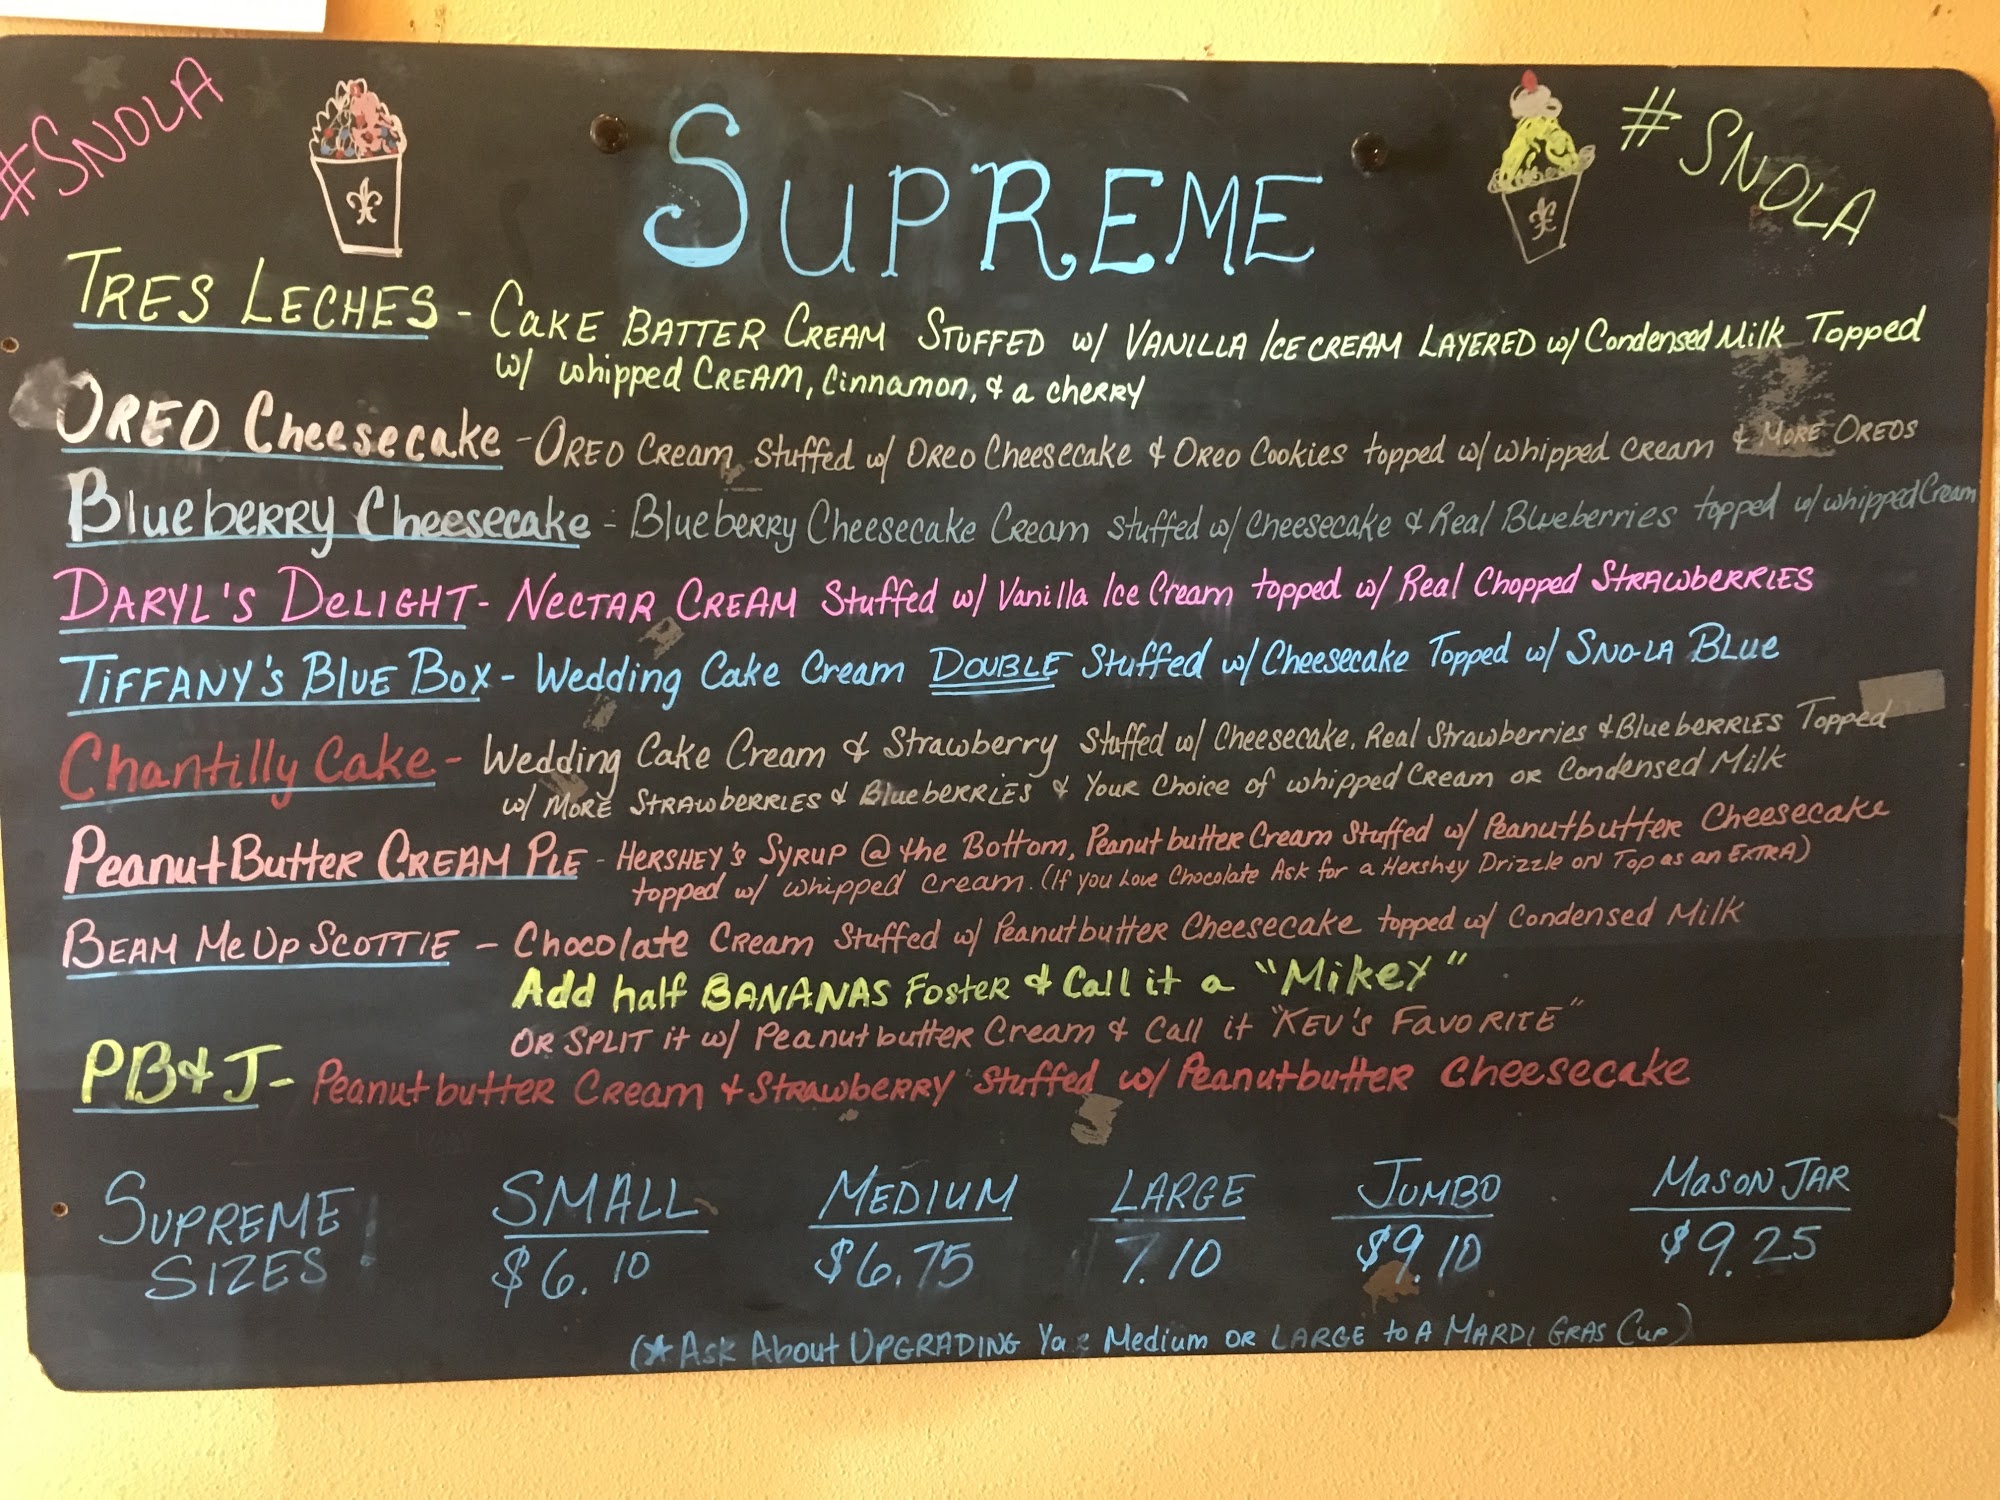 #SNOLA
SUPREME
#SNOLA
TRES LECHES - CAKE BATTER CREAM STUFFED w/ VANILLA ICE CREAM LAYERED w/ Condensed Milk Topped
w/ whipped CREAM, Cinnamon, & a cherry
OREO Cheesecake - OREO CREAM Stuffed w/ OREO Cheesecake & OREO COOKIES topped w/ whipped CREAM & MORE OREOS
Blueberry Cheesecake - Blueberry Cheesecake Cream stuffed w/ Cheesecake & Real Blueberries topped w/ whipped Cream
DARYL'S DELIGHT - NECTAR CREAM Stuffed w/ Vanilla Ice Cream topped w/ Real Chopped STRAWbERRIES
TIFFANY'S BLUE BOX - Wedding Cake Cream DOUBLE Stuffed w/ Cheesecake Topped w/ SNO-LA BLUE
Chantilly Cake - Wedding Cake Cream & Strawberry Stuffed w/ Cheesecake, Real Strawberries & BlueberRIES Topped
w/ MORE STRAWbERRIES & BlueberRIES & Your Choice of whipped Cream or Condensed Milk
PeanutButter CREAM PIE - HERSHEY'S SYRUP @ the Bottom, Peanutbutter Cream Stuffed w/ Peanutbutter Cheesecake
topped w/ whipped cream. (If you Love Chocolate Ask for a Hershey Drizzle on Top as an EXTRA)
BEAM Me Up SCOTTIE - Chocolate CREAM Stuffed w/ Peanutbutter Cheesecake topped w/ Condensed Milk
Add half BANANAS Foster & Call it a "Mikey"
OR SPLIT it w/ Peanutbutter Cream & Call it "KEV'S FAVORITE"
PB&J - Peanutbutter Cream & STRAWbERRY Stuffed w/ Peanutbutter Cheesecake
SUPREME SIZES
SMALL MEDIUM LARGE JUMBO MASON JAR
$6.10 $6.75 7.10 $9.10 $9.25
(*Ask About UPGRADING Medium OR LARGE to A MARDI GRAS Cup)